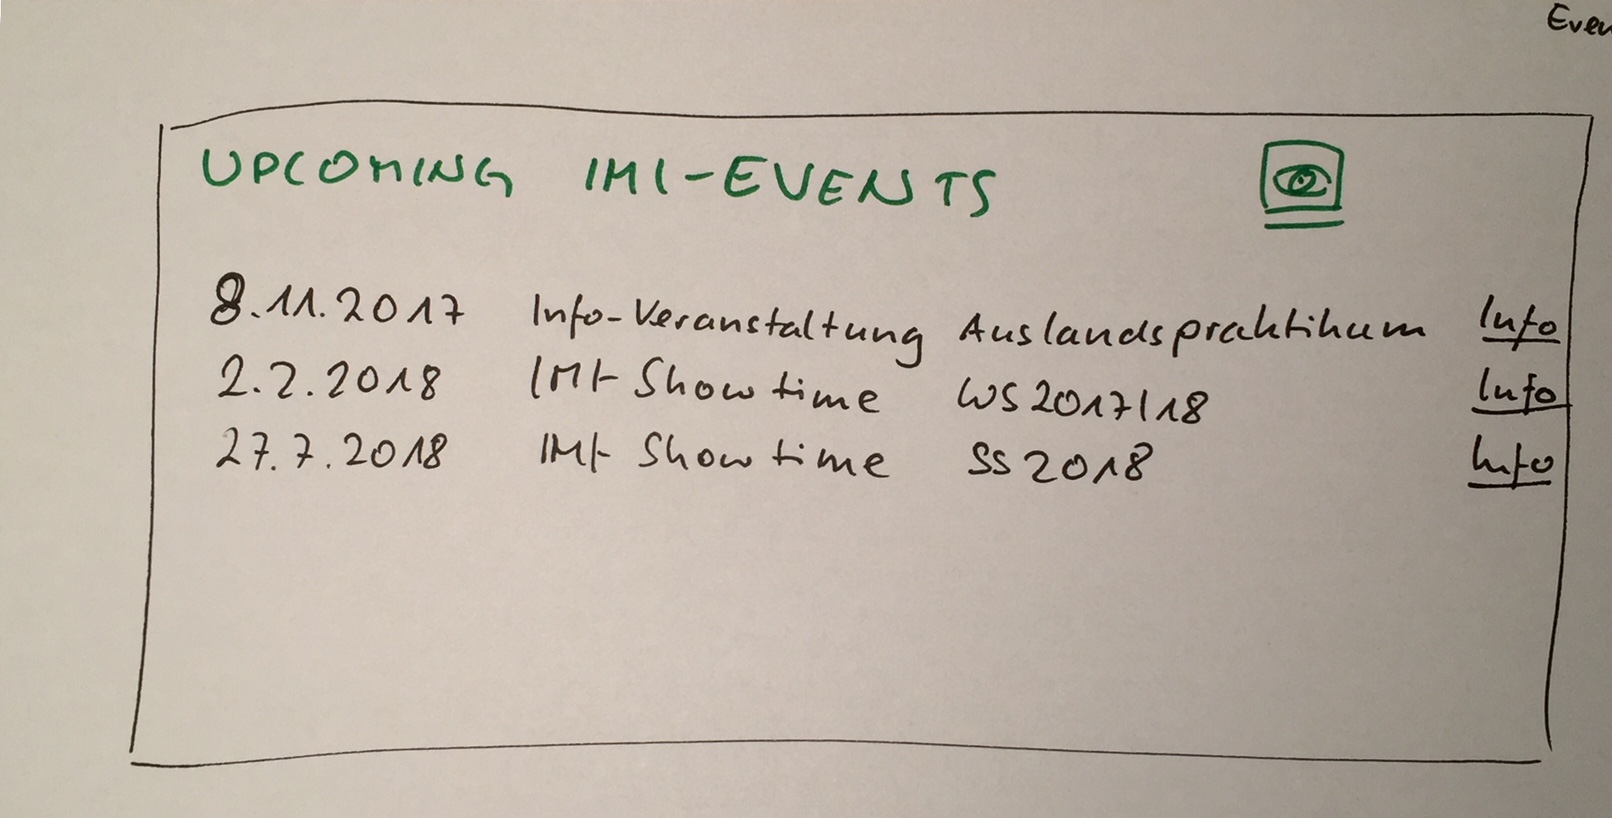 UPCOMING IMI-EVENTS
8.11.2017 Info-Veranstaltung Auslandspraktikum Info
2.2.2018 IMI-Showtime WS2017/18 Info
27.7.2018 IMI-Showtime SS2018 Info